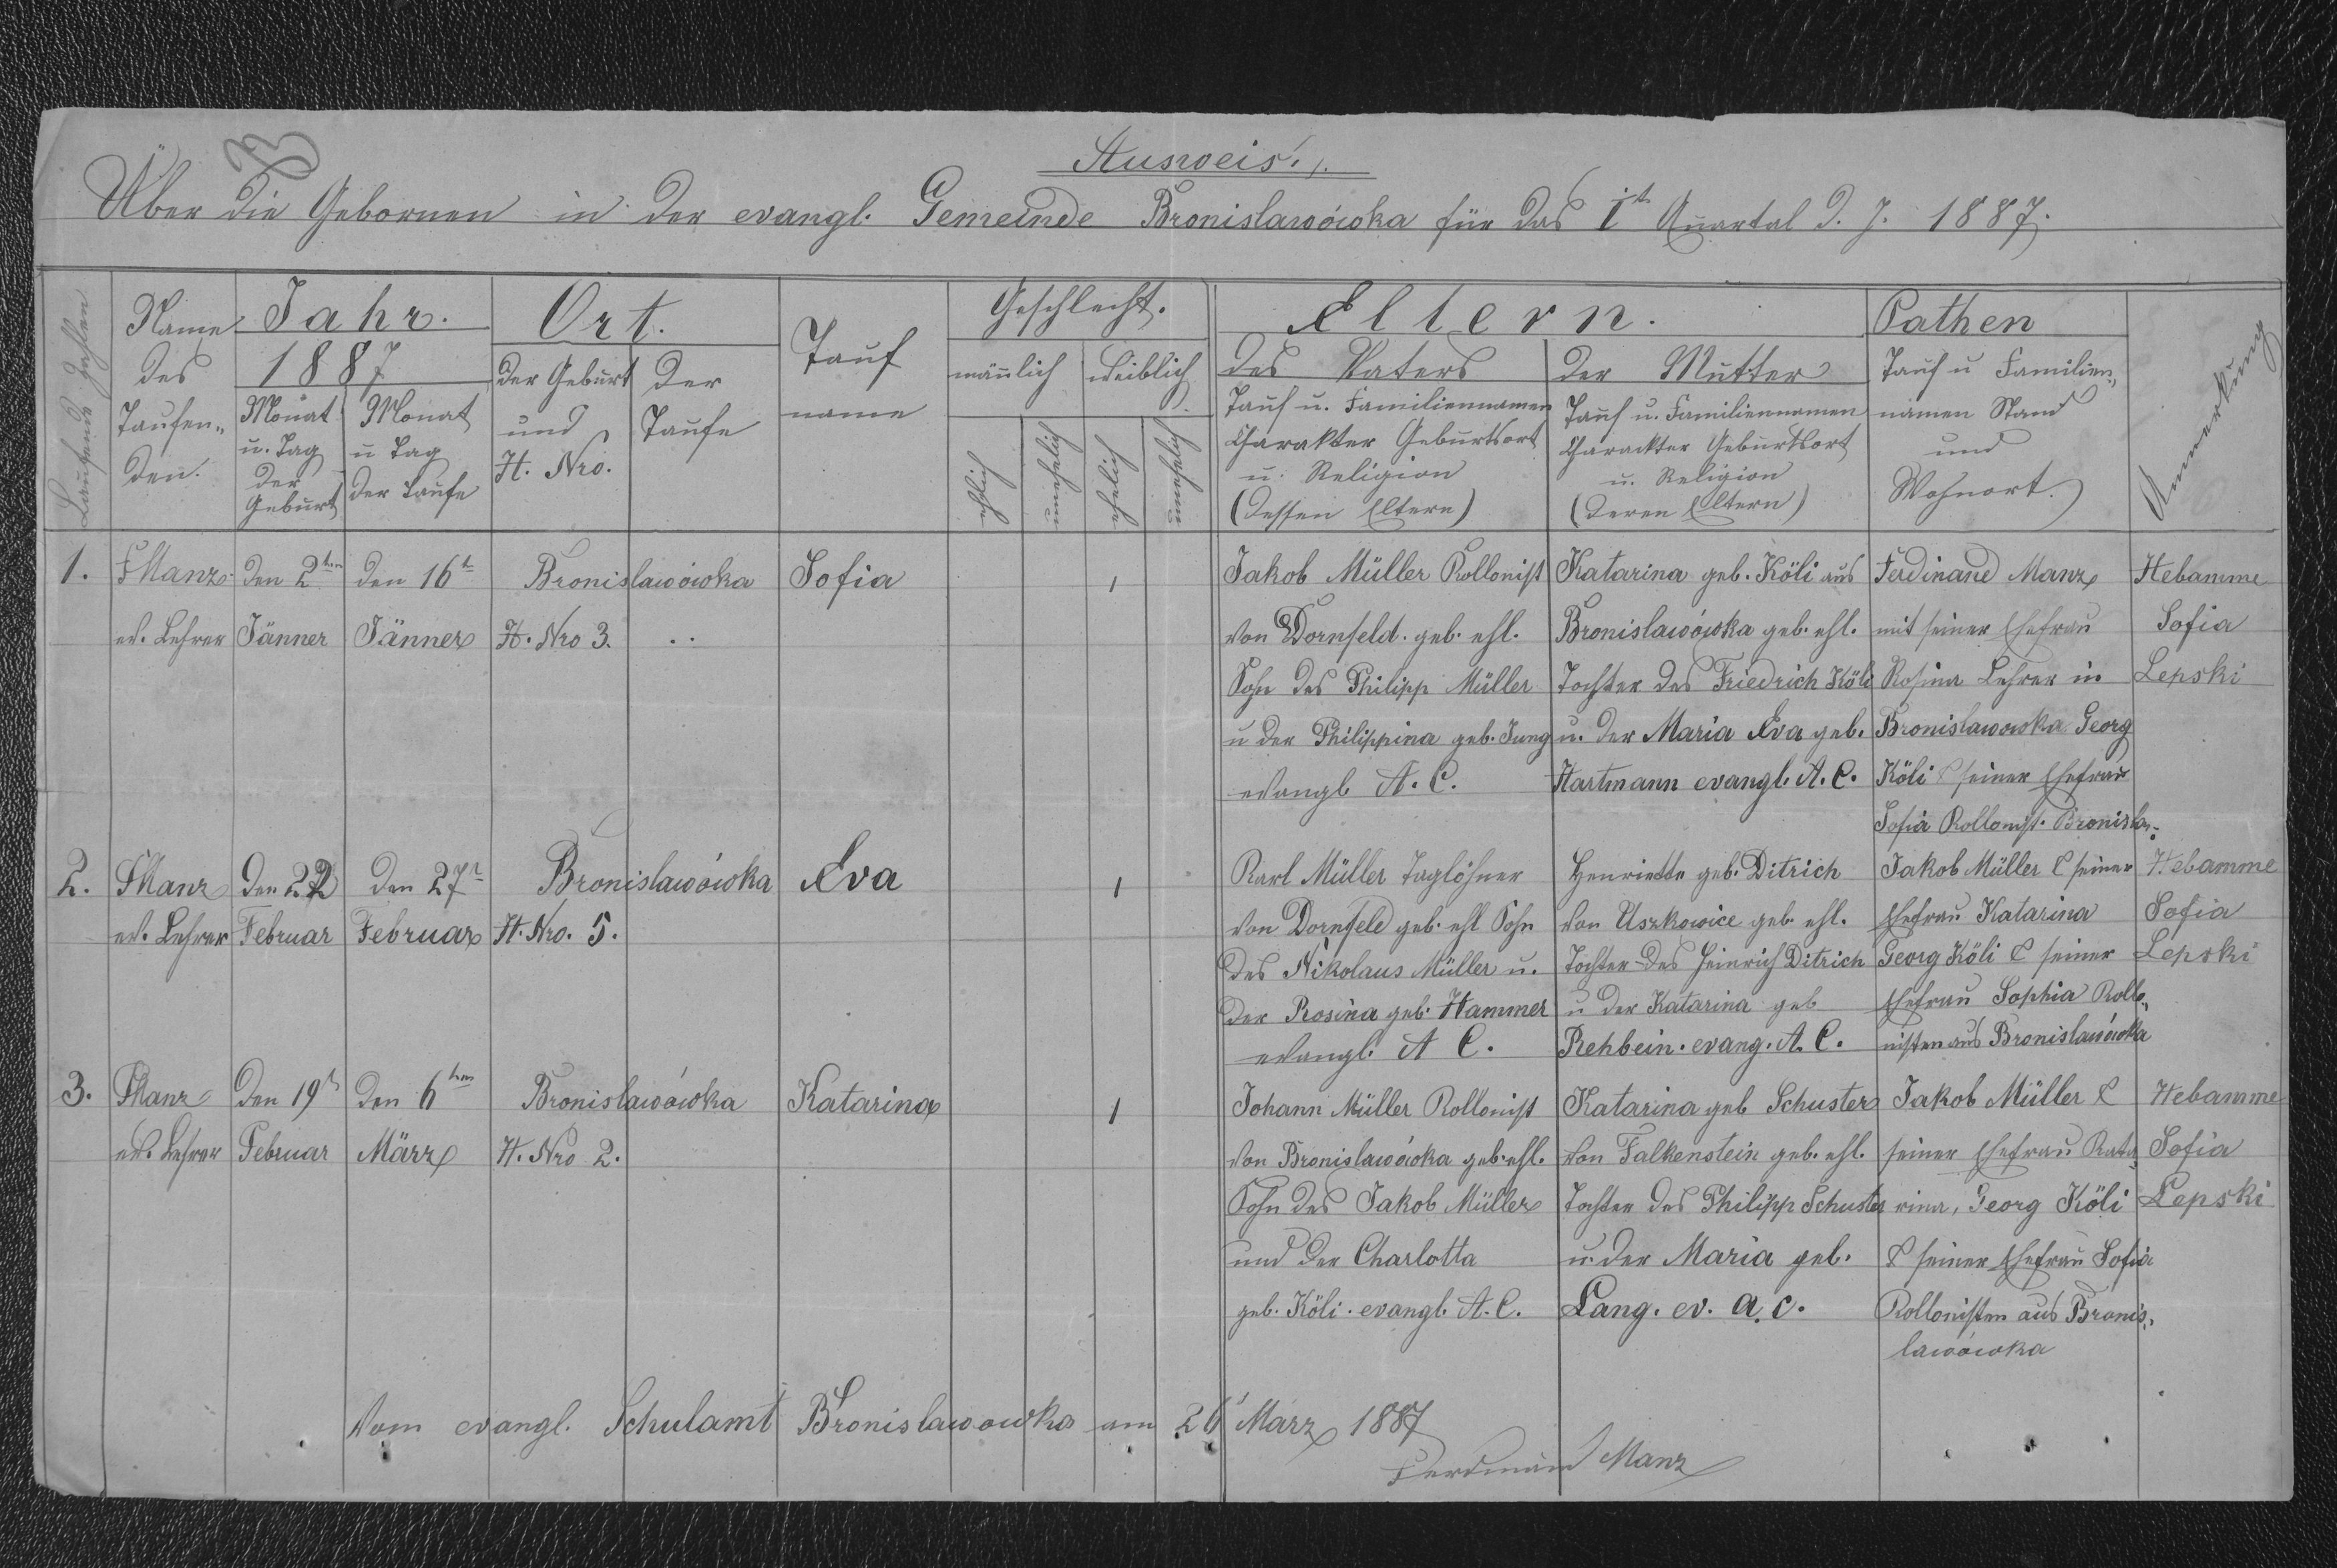 Ausweis.
Über die Gebornen in der evangl. Gemeinde Bronislawówka für das Iᵗᵉ Quartal d. J. 1887.
Laufende Zahlen
Name
des
Taufen„
den.
Jahr.
1887
Monat
u. Tag
der
Geburt
Monat
u Tag
der Taufe
Ort.
der Geburt
und
H. Nro.
der
Taufe
Tauf
name
Geschlecht.
männlich
weiblich
ehlich
unehelich
ehelich
unehelich
Eltern.
des Vaters
Tauf u. Familiennamen
Charakter Geburtsort
u. Religion
(dessen Eltern)
der Mutter
Tauf u. Familiennamen
Charackter Geburtsort
u. Religion
(deren Eltern)
Pathen
Tauf u Familien„
namen Stand
und
Wohnort.
Anmerkung
1.
FManz
ev. Lehrer
den 2ten
Jänner
den 16t
Jänner
Bronislawówka
H. Nro 3.
Sofia
1
Jakob Müller Kollonist
von Dornfeld. geb. ehl.
Sohn des Philipp Müller
u der Philippina geb. Jung
evangl. A. C.
Katarina geb. Köli aus
Bronislawówka geb. ehl.
Tochter des Friedrich Köli
u. der Maria Eva geb.
Hartmann evangl. A. C.
Ferdinand Manz
mit seiner Ehefrau
Rosina Lehrer in
Bronislawowka Georg
Köli & seiner Ehefrau
Sofia Kollonist. Bronisla„
Hebamme
Sofia
Lepski
2.
FManz
ev. Lehrer
den 22
Februar
den 27n
Februar
Bronislawówka
H. Nro. 5.
Eva
1
Karl Müller Taglöhner
von Dornfeld geb. ehl Sohn
des Nikolaus Müller u.
der Rosina geb. Hammer
evangl. A C.
Henriette geb. Ditrich
von Uszkowice geb. ehl.
Tochter des Heinrich Ditrich
u der Katarina geb
Rehbein. evang. A. C.
Jakob Müller & seiner
Ehefrau Katarina
Georg Köli & seiner
Ehefrau Sophia Kollo„
nisten aus Bronislawówka
Hebamme
Sofia
Lepski
3.
FManz
ev. Lehrer
den 19t
Februar
den 6ten
März
Bronislawówka
H. Nro 2.
Katarina
1
Johann Müller Kollonist
von Bronislawówka geb. ehl.
Sohn des Jakob Müller
und der Charlotta
geb. Köli. evangl. A. C.
Katarina geb Schuster
von Falkenstein geb. ehl.
Tochter des Philipp Schuster
u. der Maria geb.
Lang. ev. a. c.
Jakob Müller &
seiner Ehefrau Kata„
rina, Georg Köli
& seiner Ehefrau Sofia
Kollonisten aus Bronis„
lawówka
Hebamme
Sofia
Lepski
Vom evangl. Schulamt Bronislawowka am 26 März 1887
Ferdinand Manz